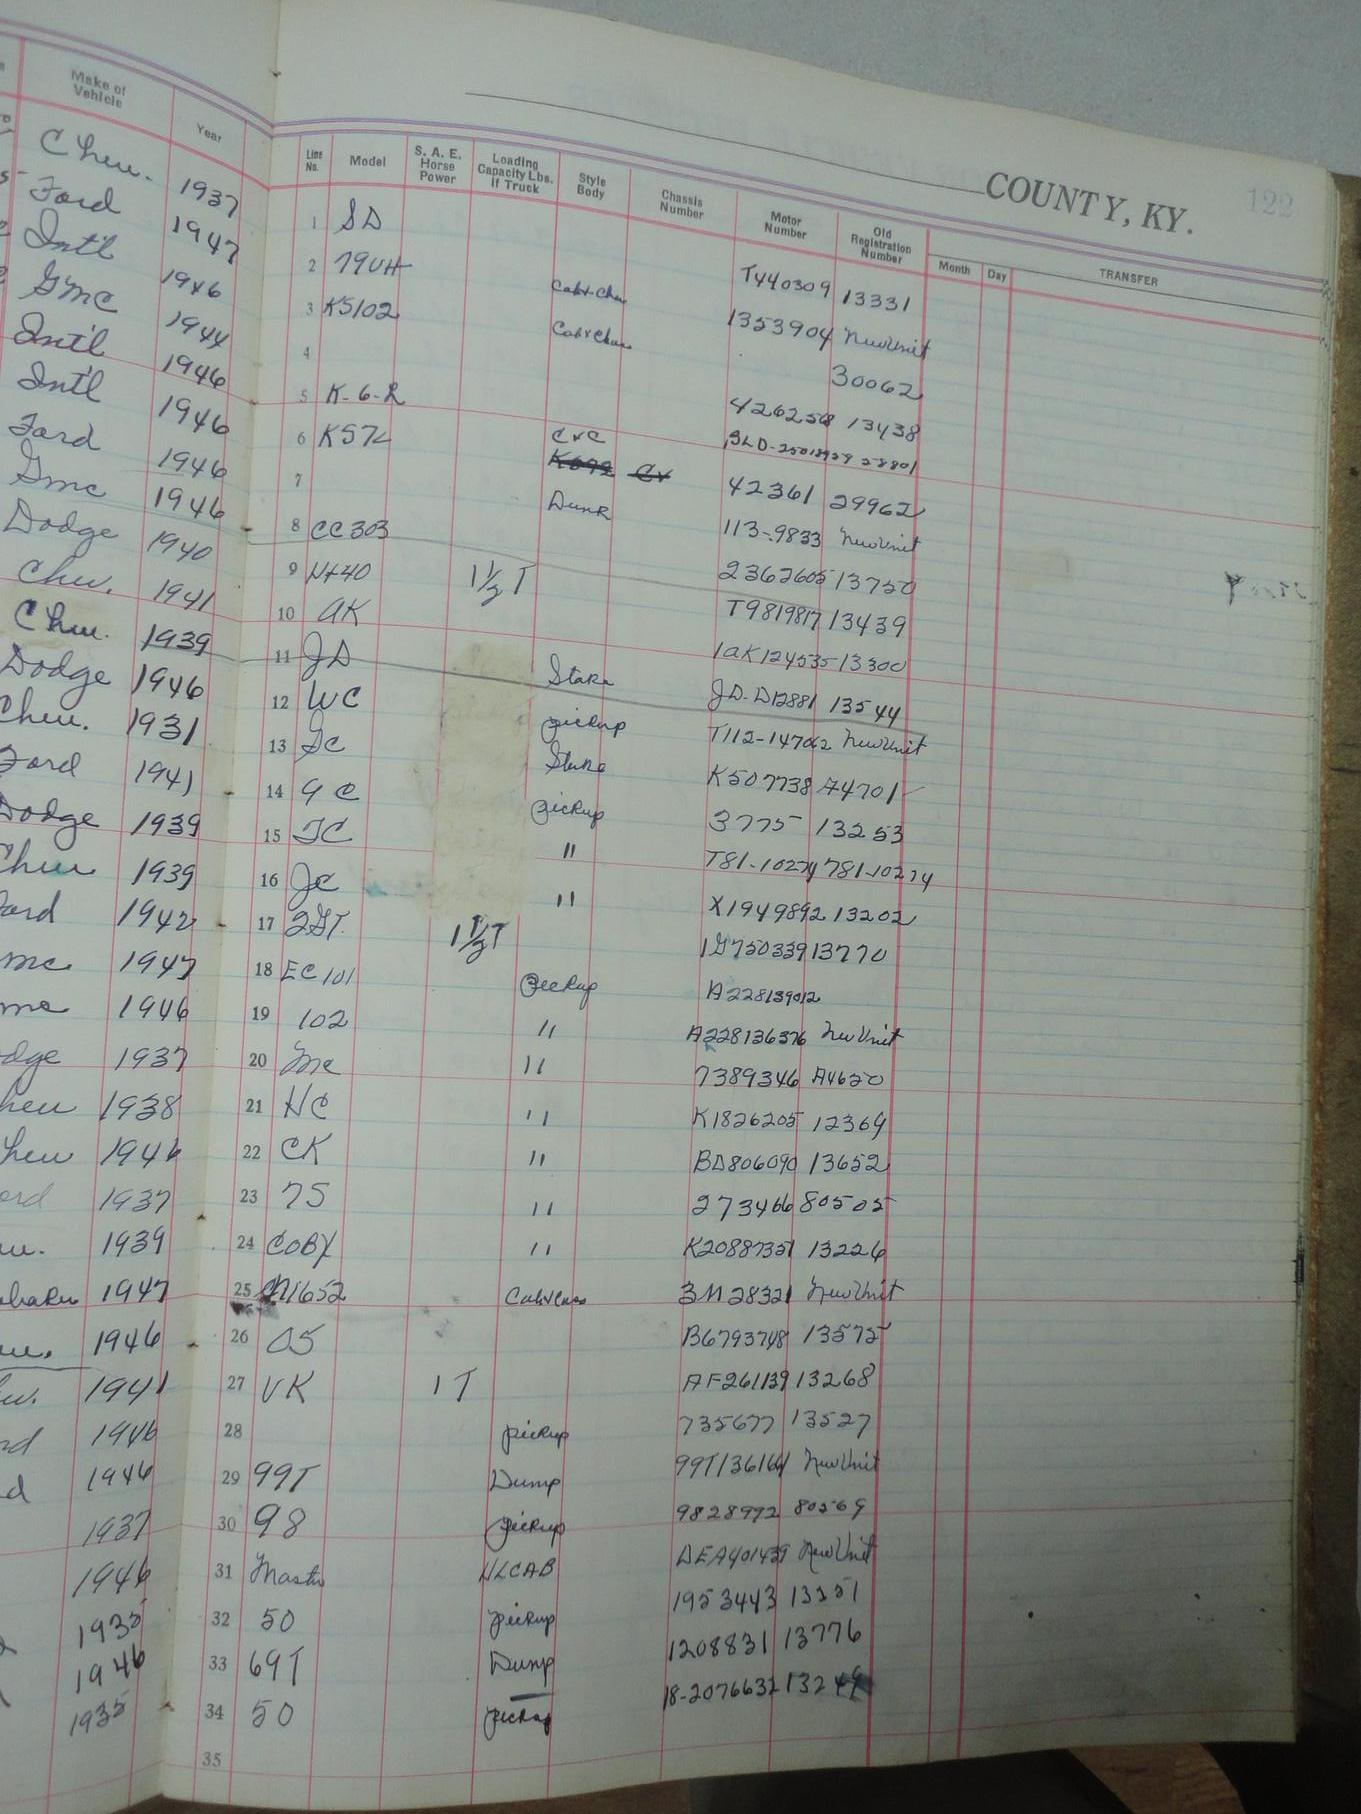 Make of Vehicle Year
Chev. 1937
Ford 1947
Int'l 1946
GMC 1944
Int'l 1946
Int'l 1946
Ford 1946
Gmc 1946
Dodge 1940
Chev. 1941
Chev. 1939
Dodge 1946
Chev. 1931
Ford 1941
Dodge 1939
Chev 1939
ord 1942
mc 1947
me 1946
dge 1937
hev 1938
hev 1946
ord 1937
1939
baker 1947
1946
1941
1946
1946
1937
1946
1935
1946
1935
COUNTY, KY. 122
Line No. Model S. A. E. Horse Power Loading Capacity Lbs. if Truck Style Body Chassis Number Motor Number Old Registration Number Month Day TRANSFER
1 SD T440309 13331
2 79UH Cab+Chas 1353904 New Unit
3 KS102 Cab+Chas 30062
4 426258 13438
5 K-6-R
6 KS7L C+C 42361 29962
7 Dump 113-9833 New Unit
8 CC303 2362605 13750
9 1½ T T9819817 13439
10 AK 1AK124535 13300
11 JD Stake JD-D12881 13544
12 WC pickup T112-14702 New Unit
13 TC Stake K507738 A4701
14 GC pickup 3775 13253
15 TC " T81-10274 781-10274
16 JC " X1949892 13202
17 2GT. 1½ T 1G750339 13770
18 EC101 Pickup A228139012
19 102 " A228136376 New Unit
20 Mc " 7389346 A4620
21 HC " K1826205 12369
22 CK " BD806090 13652
23 75 " 273466 80505
24 COBY " K2088735 13226
25 M1652 Cab+Chas 3M28321 New Unit
26 OS B6793748 13575
27 VK 1 T AF261139 13268
28 pickup 735677 13527
29 99T Dump 99T136164 New Unit
30 98 pickup 9828992 80569
31 Master HLCAB DEA401439 New Unit
32 50 pickup 1953443 13351
33 69T Dump 1208831 13776
34 50 pickup 18-2076632
35